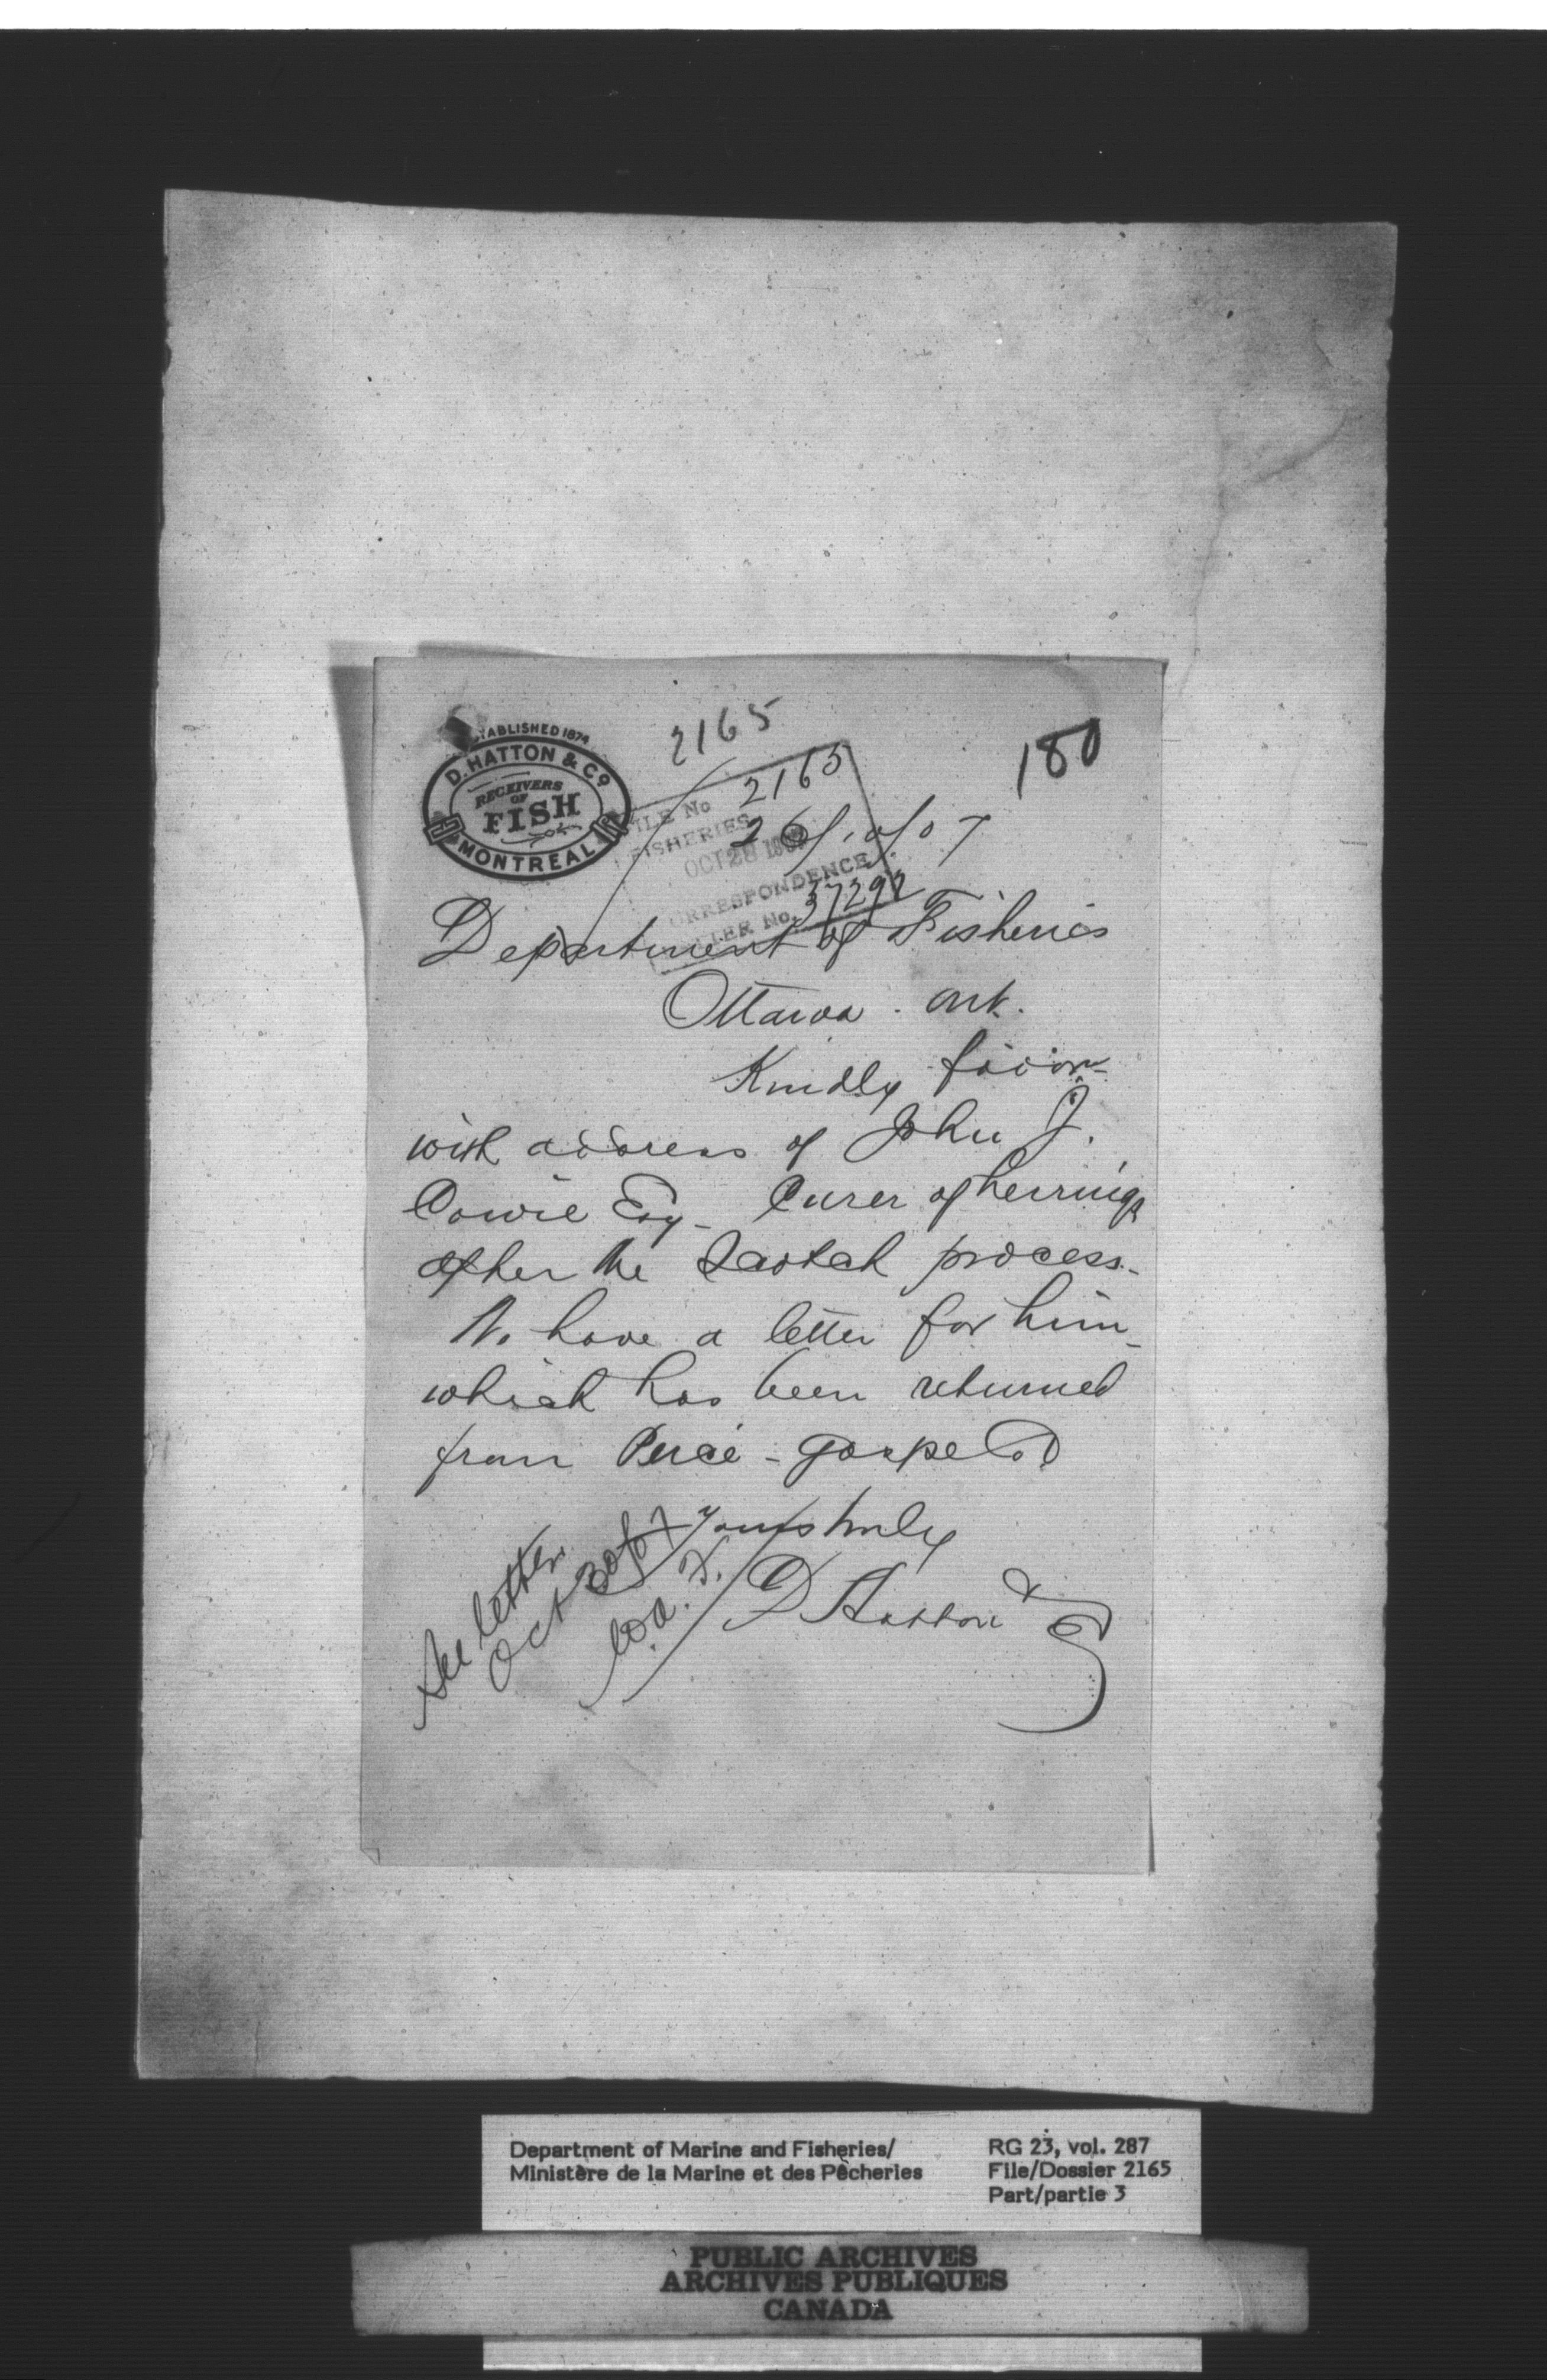 2165
180
ESTABLISHED 1874
D. HATTON & CO
RECEIVERS
OF
FISH
MONTREAL
FILE No 2165
FISHERIES
OCT 28 1907
CORRESPONDENCE
LETTER No. 37292
26/ /07
Department of Fisheries
Ottawa. Ont.
Kindly favor
with address of John J.
Cowie Esq - Curer of herrings
after the Scotch process -
We have a letter for him -
which has been returned
from Percé - Gaspe Co
Yours truly
D Hatton & Co
See letter
Oct 30/07
Department of Marine and Fisheries/
Ministère de la Marine et des Pêcheries
RG 23, vol. 287
File/Dossier 2165
Part/partie 3
PUBLIC ARCHIVES
ARCHIVES PUBLIQUES
CANADA